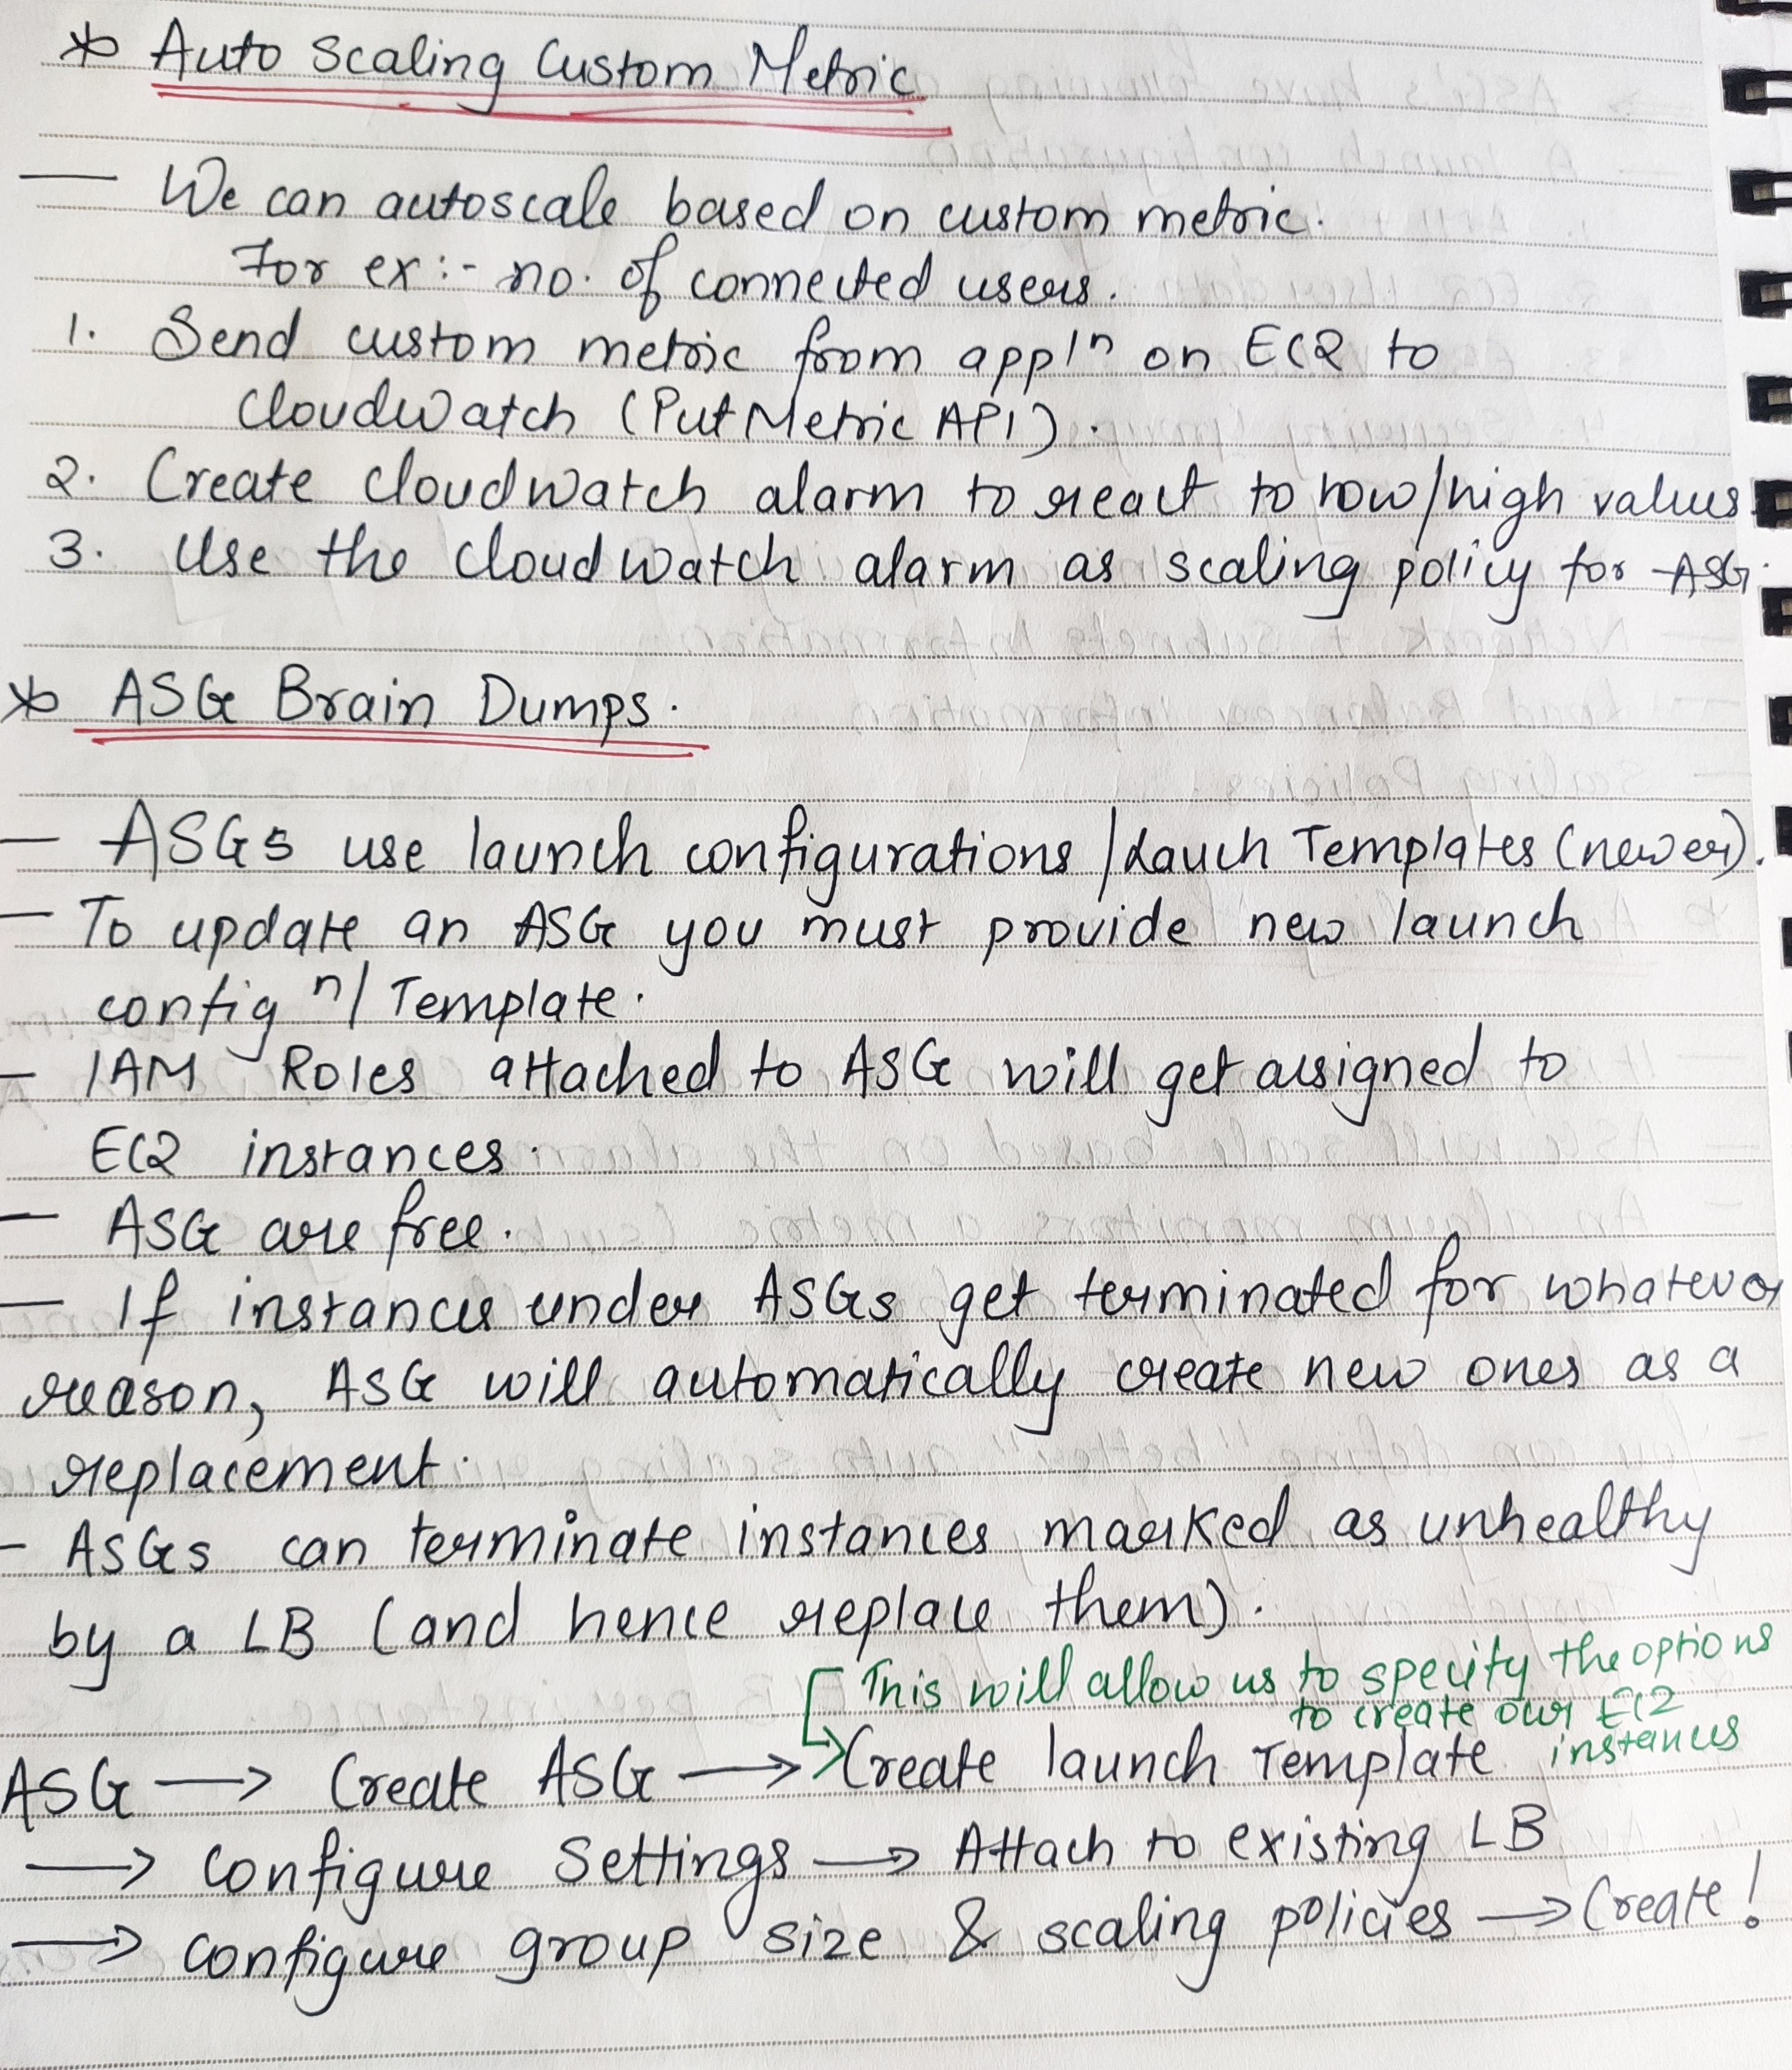 * Auto Scaling Custom Metric
— We can autoscale based on custom metric.
For ex:- no. of connected users.
1. Send custom metric from appln on EC2 to
CloudWatch (PutMetric API).
2. Create cloudwatch alarm to react to low/high values.
3. Use the cloudwatch alarm as scaling policy for ASG.
* ASG Brain Dumps.
— ASGs use launch configurations / Lauch Templates (newer).
— To update an ASG you must provide new launch
config n/ Template.
— IAM Roles attached to ASG will get assigned to
EC2 instances.
— ASG are free.
— If instances under ASGs get terminated for whatever
reason, ASG will automatically create new ones as a
replacement.
- ASGs can terminate instances marked as unhealthy
by a LB (and hence replace them).
This will allow us to specify the options
to create our EC2
instances
ASG → Create ASG → Create launch Template
→ configure Settings → Attach to existing LB
→ configure group size & scaling policies → Create!